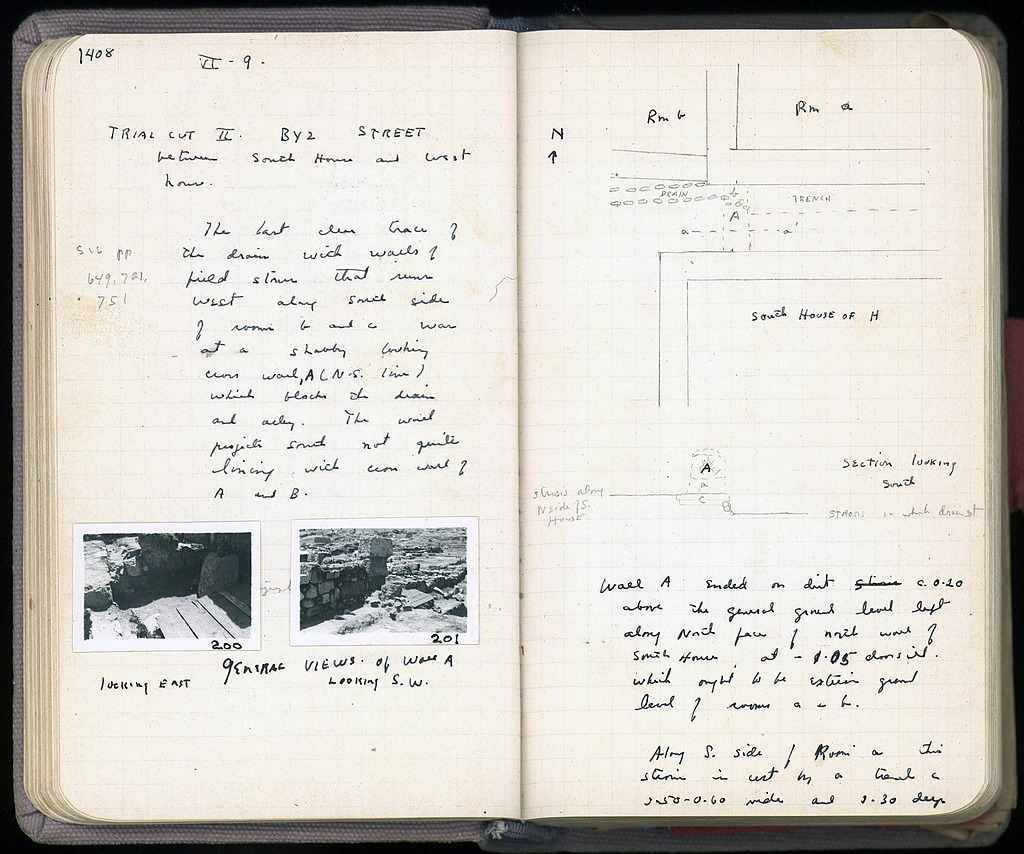 1408
VI - 9.
TRIAL CUT II. BYZ STREET
between South House and West
house.
The last clear trace of
the drain with walls of
field stone that runs
West along South side
of rooms b and c was
at a shabby looking
cross wall, A (N-S. line)
which blocks the drain
and alley. The wall
projects south not quite
lining with cross wall of
A and B.
See pp
649, 721,
751
200
201
GENERAL VIEWS. OF WALL A
looking EAST
LOOKING S.W.
N
Rm b
Rm a
DRAIN
b
TRENCH
A
a
a'
South HOUSE OF H
A
a
C
B
Section looking
South
strosis along
N side of S.
House
STROSIS in which drain set
Wall A ended on dirt c. 0.20
above the general ground level left
along North face of north wall of
South House, at - 1.05
which ought to be exterior ground
level of rooms a + b.
Along S. side of Room a this
strosis is cut by a trench c
0.50-0.60 wide and 0.30 deep